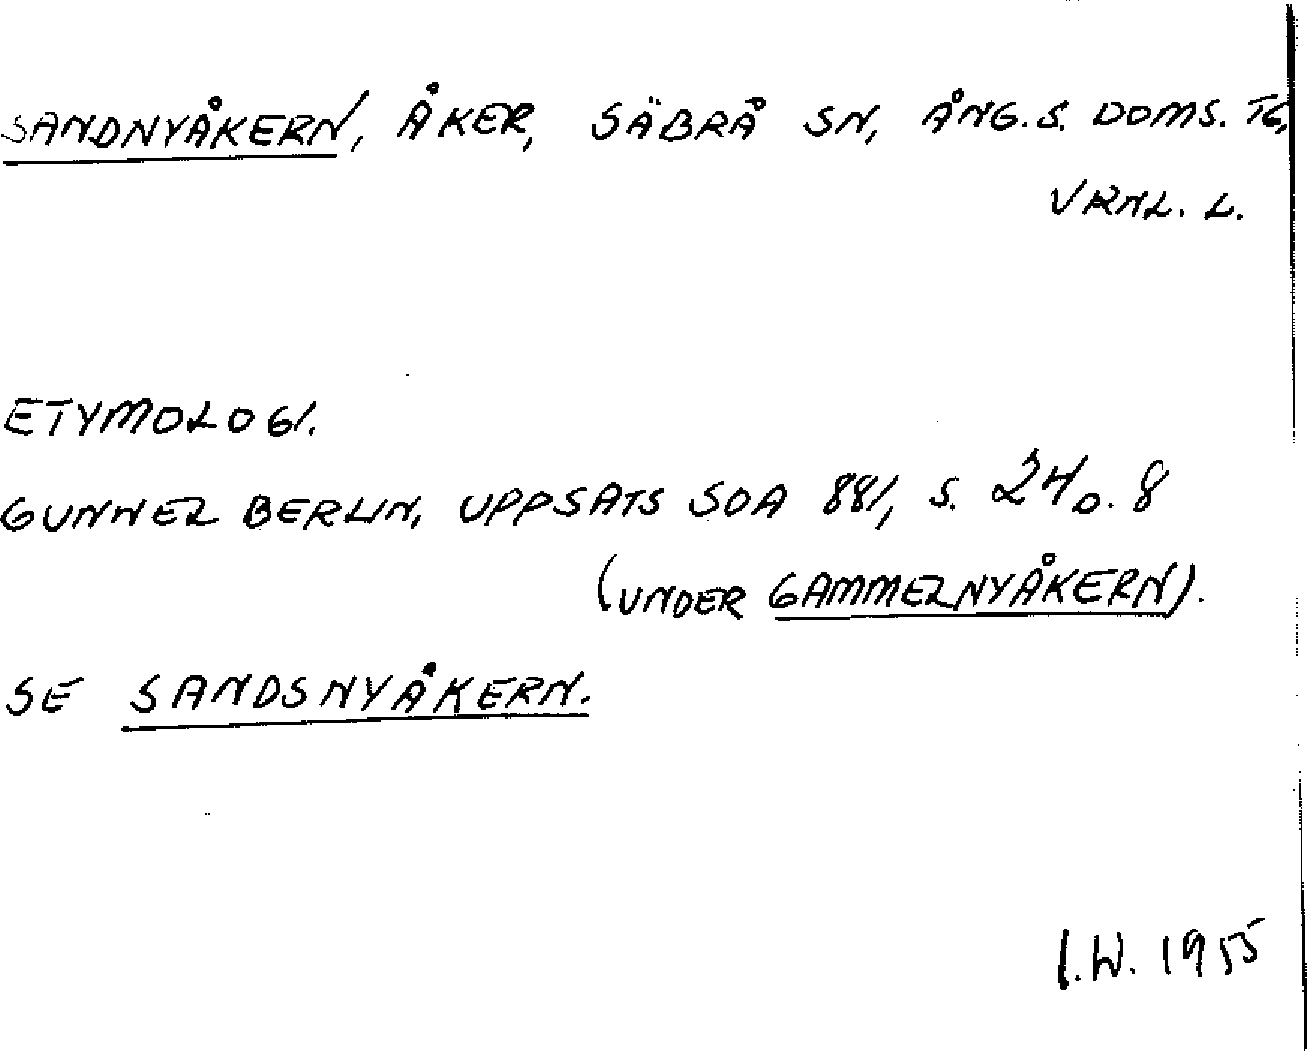 SANDNYÅKERN, ÅKER, SÄBRÅ SN, ÅNG. S. DOMS. TG,
VRNL. L.
ETYMOLOGI.
GUNNEL BERLIN, UPPSATS SOA 881, S. 24 o. 8
(UNDER GAMMELNYÅKERN).
SE SANDSNYÅKERN.
I.W. 1955